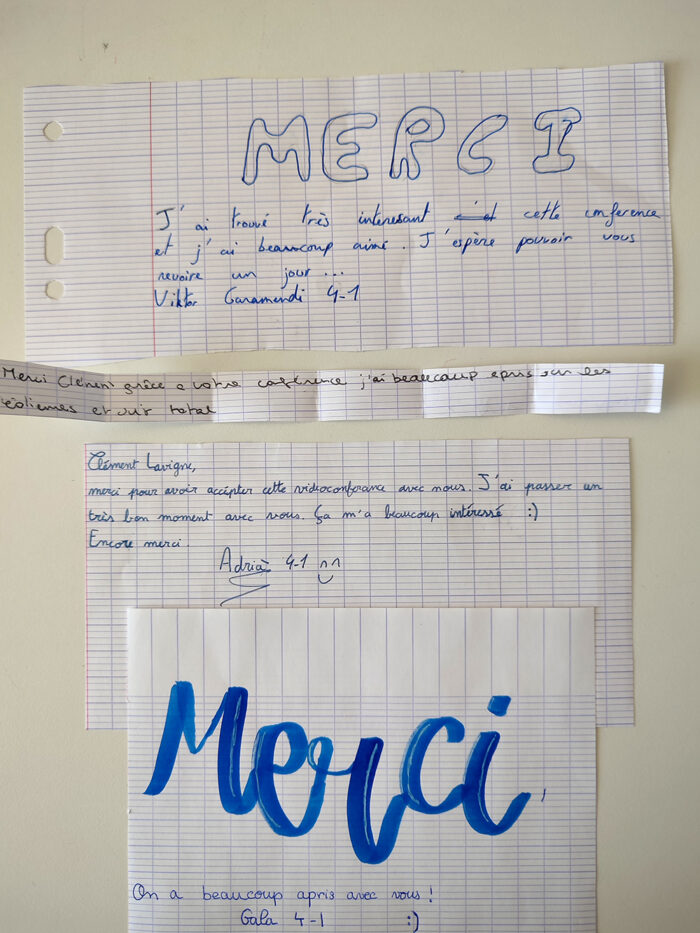 MERCI
J'ai trouvé très interesant cette conference
et j'ai beaucoup aimé. J'espère pouvoir vous
revoire un jour...
Viktor Garamendi 4-1
Merci Clément grâce a votre conférence j'ai beaucoup apris sur les
éoliennes et sur total
Clément Lavigne,
merci pour avoir accépter cette vidéoconférance avec nous. J'ai passer un
très bon moment avec vous. Ça m'a beaucoup intéressé :)
Encore merci.
Adrià 4-1
Merci,
On a beaucoup apris avec vous!
Gala 4-1 :)